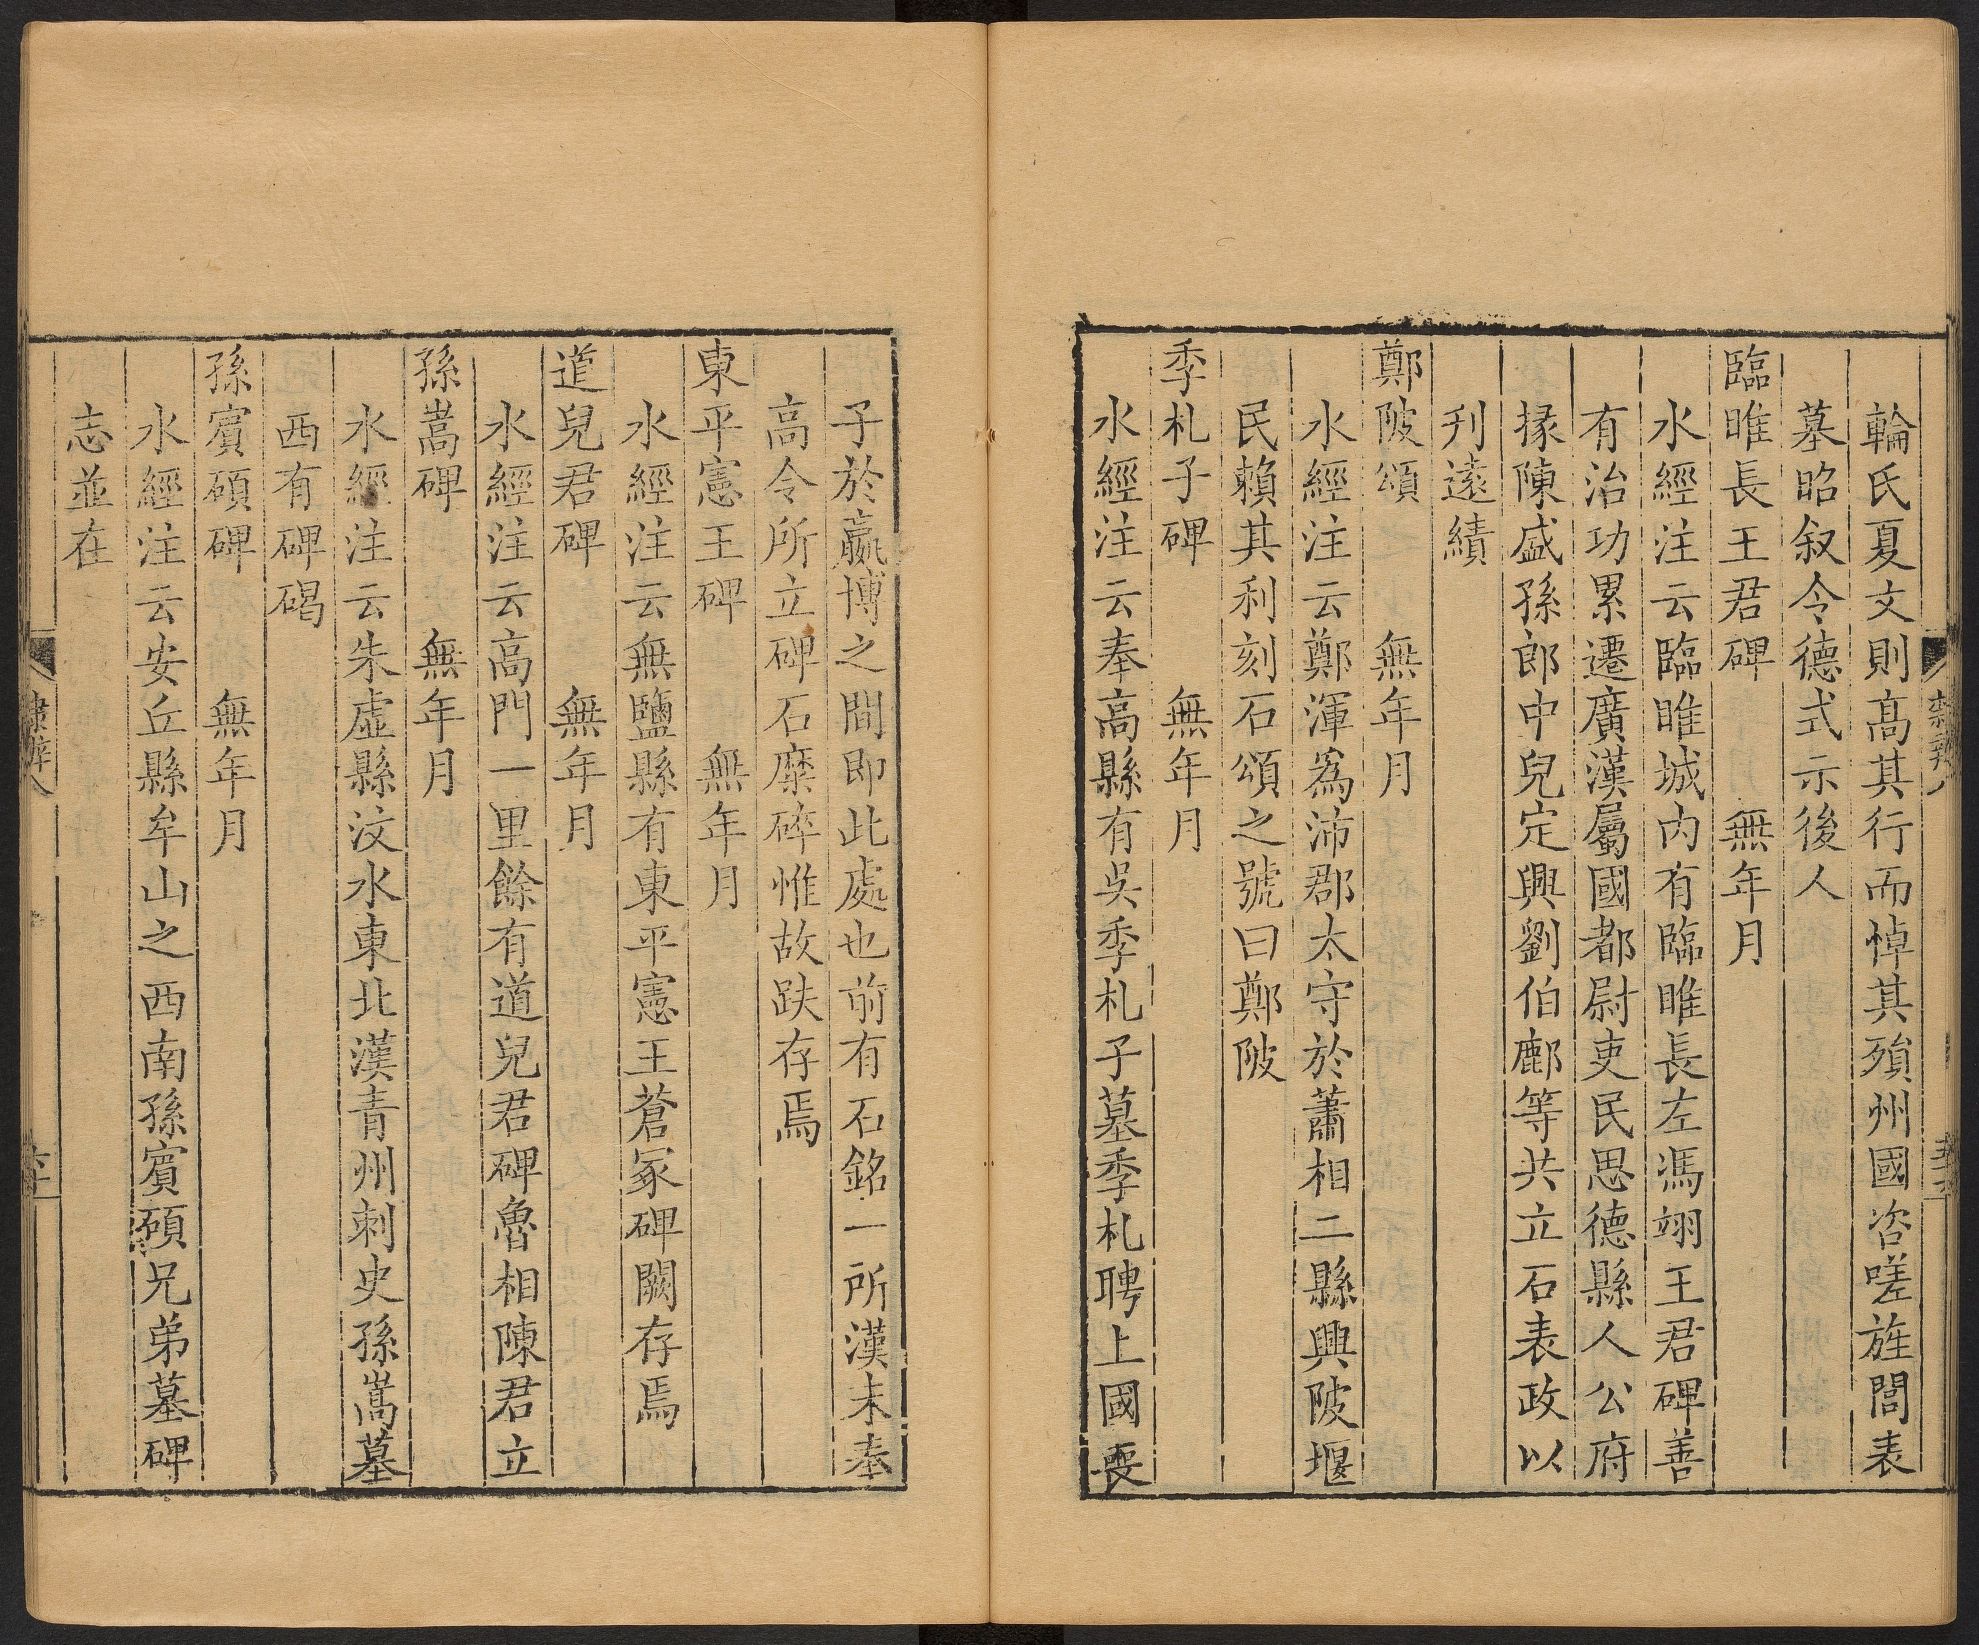 輪氏夏文則髙其行而悼其殞州國咨嗟旌閭表
墓昭叙令德式示後人
臨睢長王君碑 無年月
水經注云臨睢城内有臨睢長左馮翊王君碑善
有治功累遷廣漢屬國都尉吏民思德縣人公府
掾陳盛孫郎中兒定興劉伯鄜等共立石表政以
刋遠績
鄭陂頌 無年月
水經注云鄭渾爲沛郡太守於蕭相二縣興陂堰
民賴其利刻石頌之號曰鄭陂
季札子碑 無年月
水經注云奉高縣有吳季札子墓季札聘上國喪
子於嬴博之間即此處也前有石銘一所漢末奉
高令所立碑石糜碎惟故趺存焉
東平憲王碑 無年月
水經注云無鹽縣有東平憲王蒼冢碑闕存焉
道兒君碑 無年月
水經注云高門一里餘有道兒君碑魯相陳君立
孫嵩碑 無年月
水經注云朱虛縣汶水東北漢青州刺史孫嵩墓
西有碑碣
孫賓碩碑 無年月
水經注云安丘縣牟山之西南孫賓碩兄弟墓碑
志並在